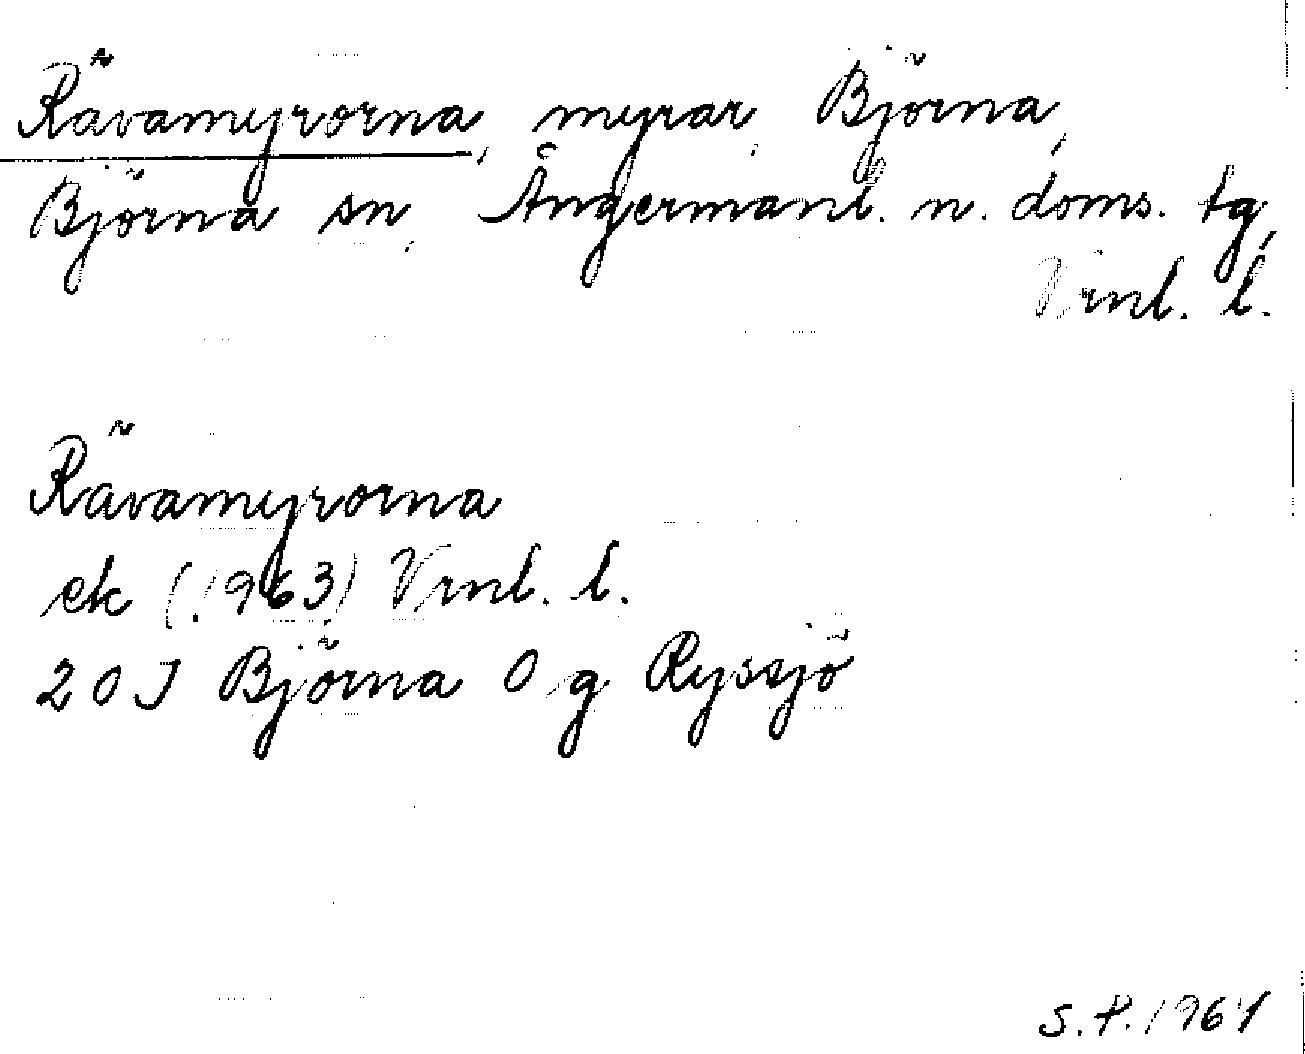 Rävamyrorna, myrar, Björna,
Björna sn, Ångermanl. n. doms. tg,
Vrnl. l.
Rävamyrorna
ek (1963) Vrnl. l.
20J Björna 0 g Ryssjö
S.P. 1964